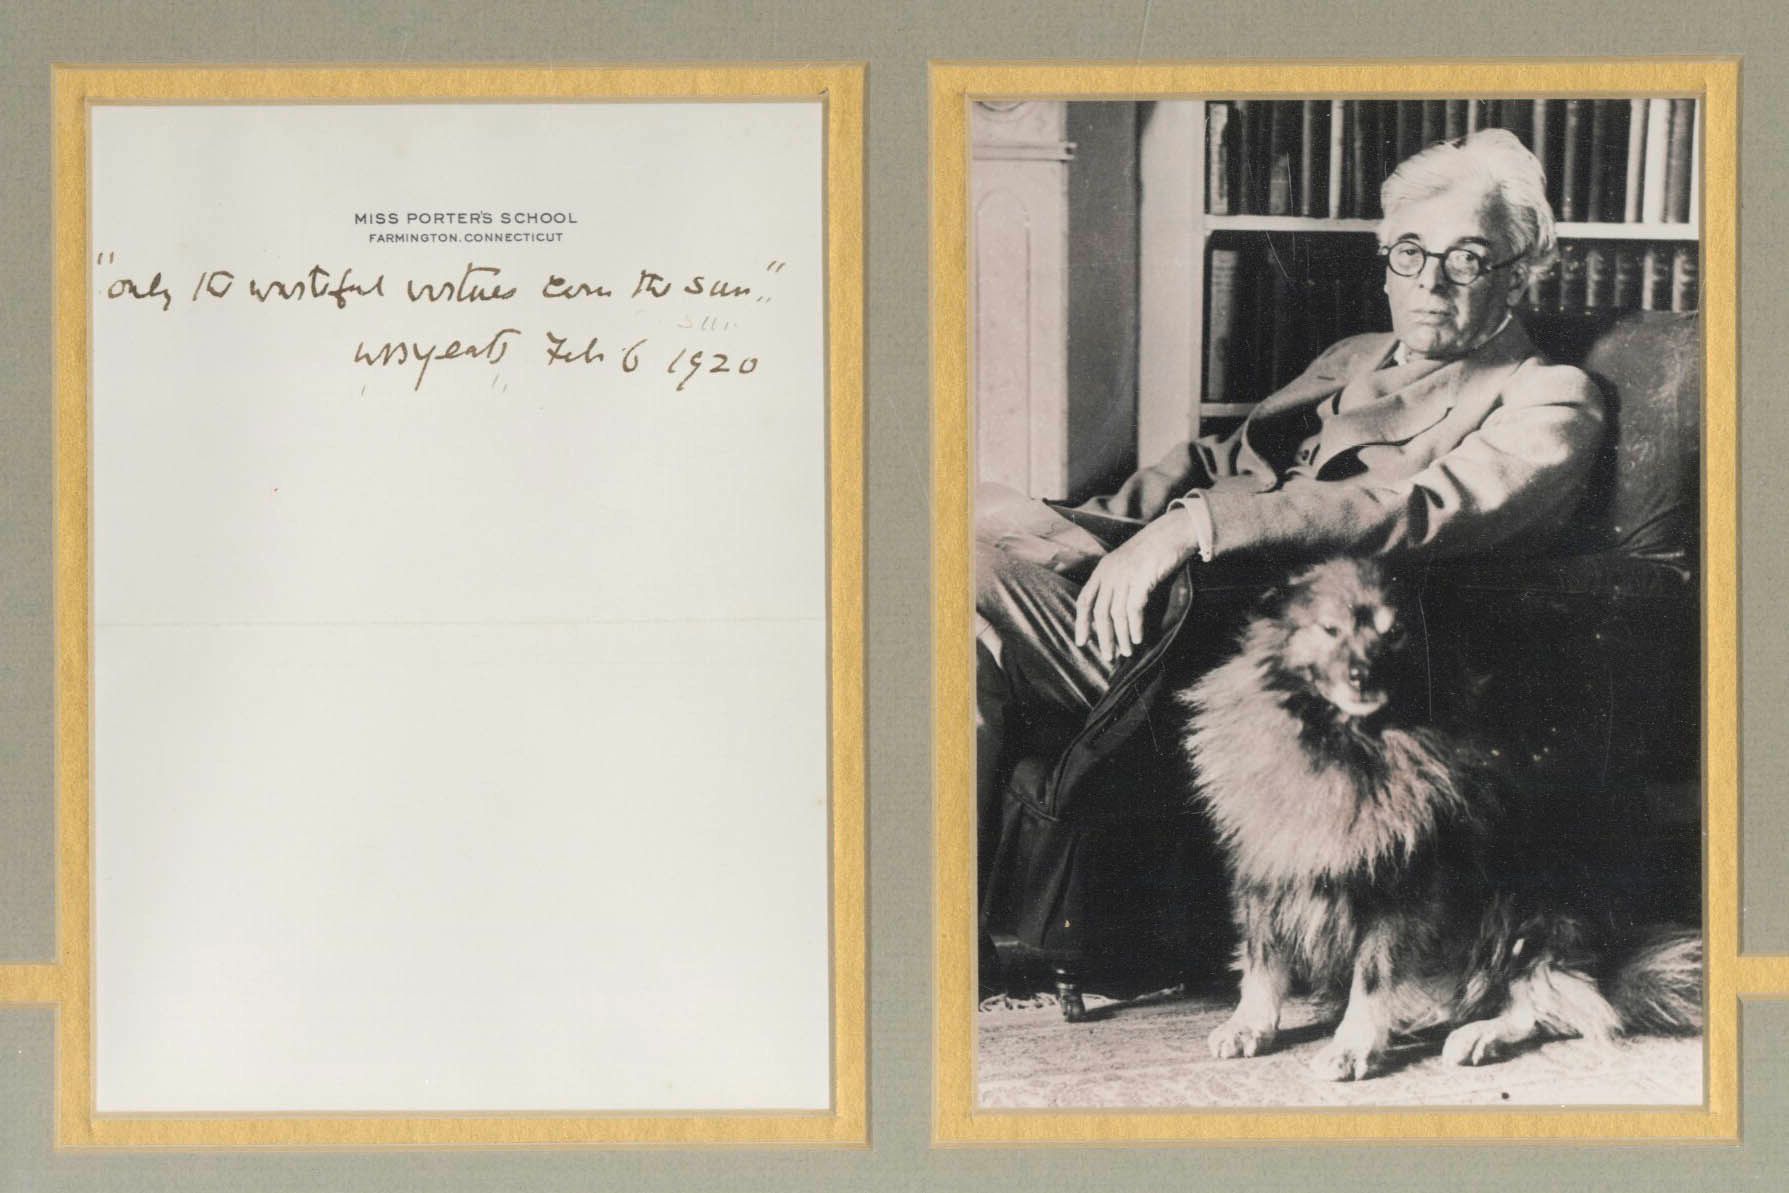 MISS PORTER'S SCHOOL
FARMINGTON, CONNECTICUT
"only the wasteful virtues earn the sun."
WB Yeats Feb 6 1920